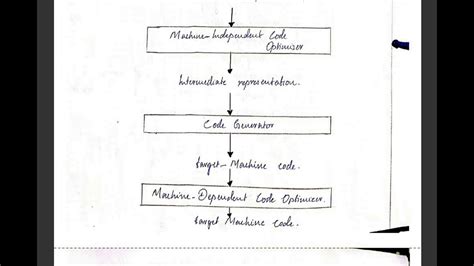 Machine-Independent Code
Optimizer
Intermediate representation.
Code Generator
target-Machine code.
Machine-Dependent Code Optimizer.
target Machine Code.